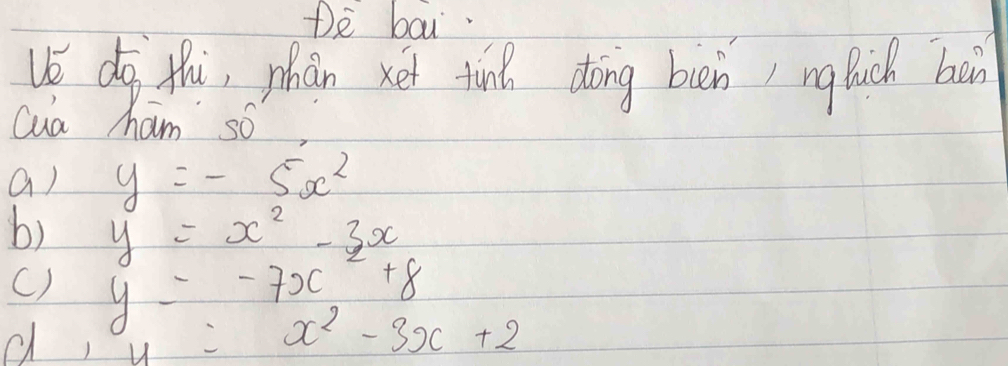 Đề bài.
Vẽ đồ thị, nhận xét tính đồng biến, nghịch biến
của hàm số
a) y = - 5x²
b) y = x² - 3x
c) y = -7x² +8
d, y = x² - 3x +2